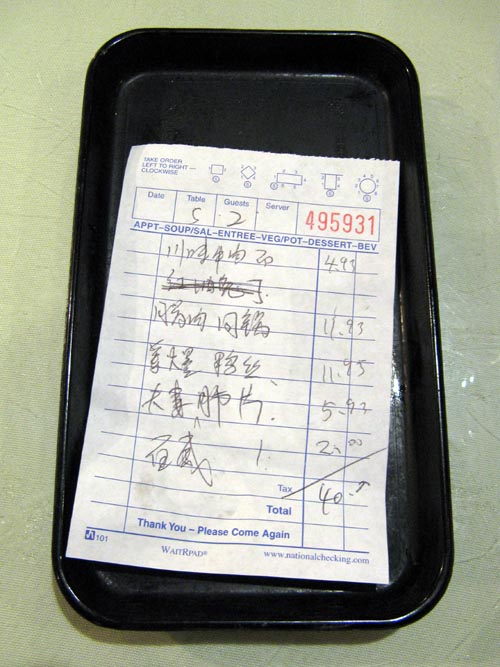 TAKE ORDER
LEFT TO RIGHT —
CLOCKWISE
Date Table Guests Server
5 2 495931
APPT–SOUP/SAL–ENTREE–VEG/POT–DESSERT–BEV
川 4.95
肉 回锅 11.95
粉丝 11.95
夫妻肺片 5.95
百威 1 2.00
Tax
Total 40
Thank You – Please Come Again
101
WAITRPAD® www.nationalchecking.com